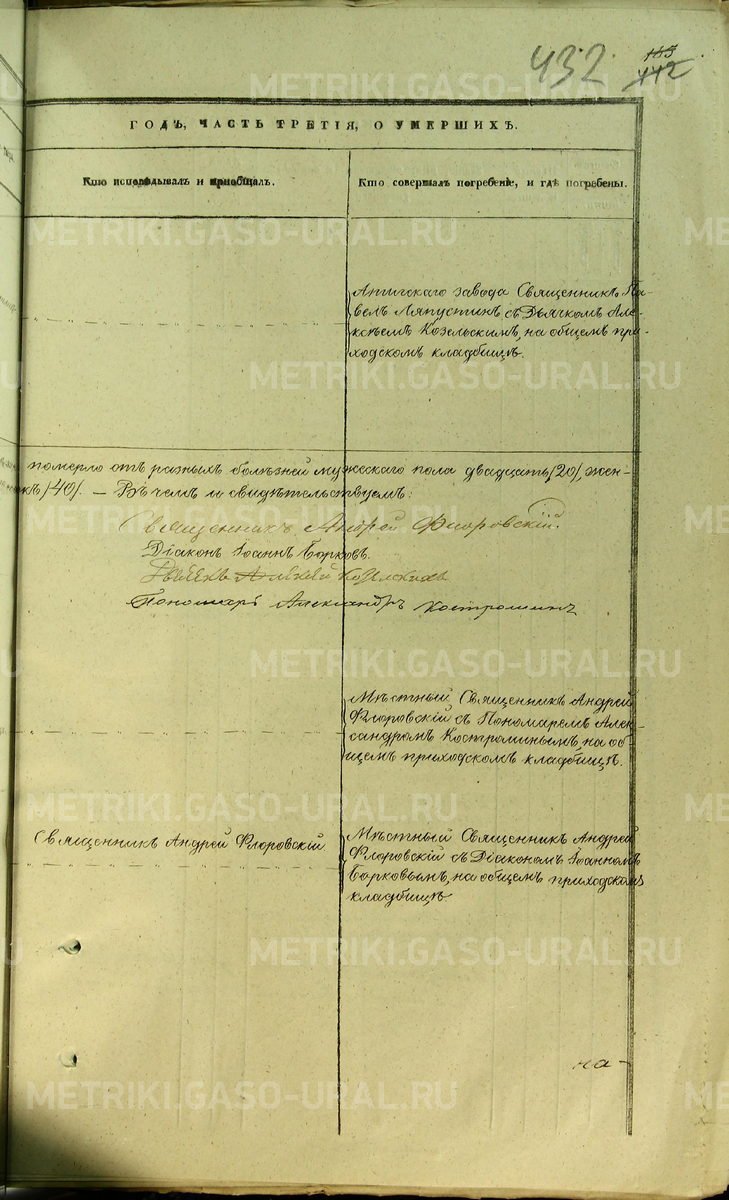 432
165
112
ГОДѢ, ЧАСТЬ ТРЕТІЯ, О УМЕРШИХЪ.
Кто исповѣдывалъ и приобщалъ.
Кто совершалъ погребеніе, и гдѣ погребены.
Атигскаго завода Священникъ Па-
велъ Ляпустинъ съ Дьячкомъ Але-
ксѣемъ Козельскимъ, на общемъ при-
ходскомъ кладбищѣ.
померло отъ разныхъ болѣзней мужескаго пола двадцать /20/, жен-
/40/. — Въ чемъ и свидѣтельствуемъ:
Священникъ Андрей Флоровскій.
Діаконъ Іоаннъ Борковъ.
Алексѣй
Пономарь Александръ Костроминъ
Мѣстный Священникъ Андрей
Флоровскій съ Пономаремъ Алек-
сандромъ Костроминымъ, на об-
щемъ приходскомъ кладбищѣ.
Священникъ Андрей Флоровскій
Мѣстный Священникъ Андрей
Флоровскій съ Діакономъ Іоанномъ
Борковымъ, на общемъ приходскомъ
кладбищѣ
на-
METRIKI.GASO-URAL.RU